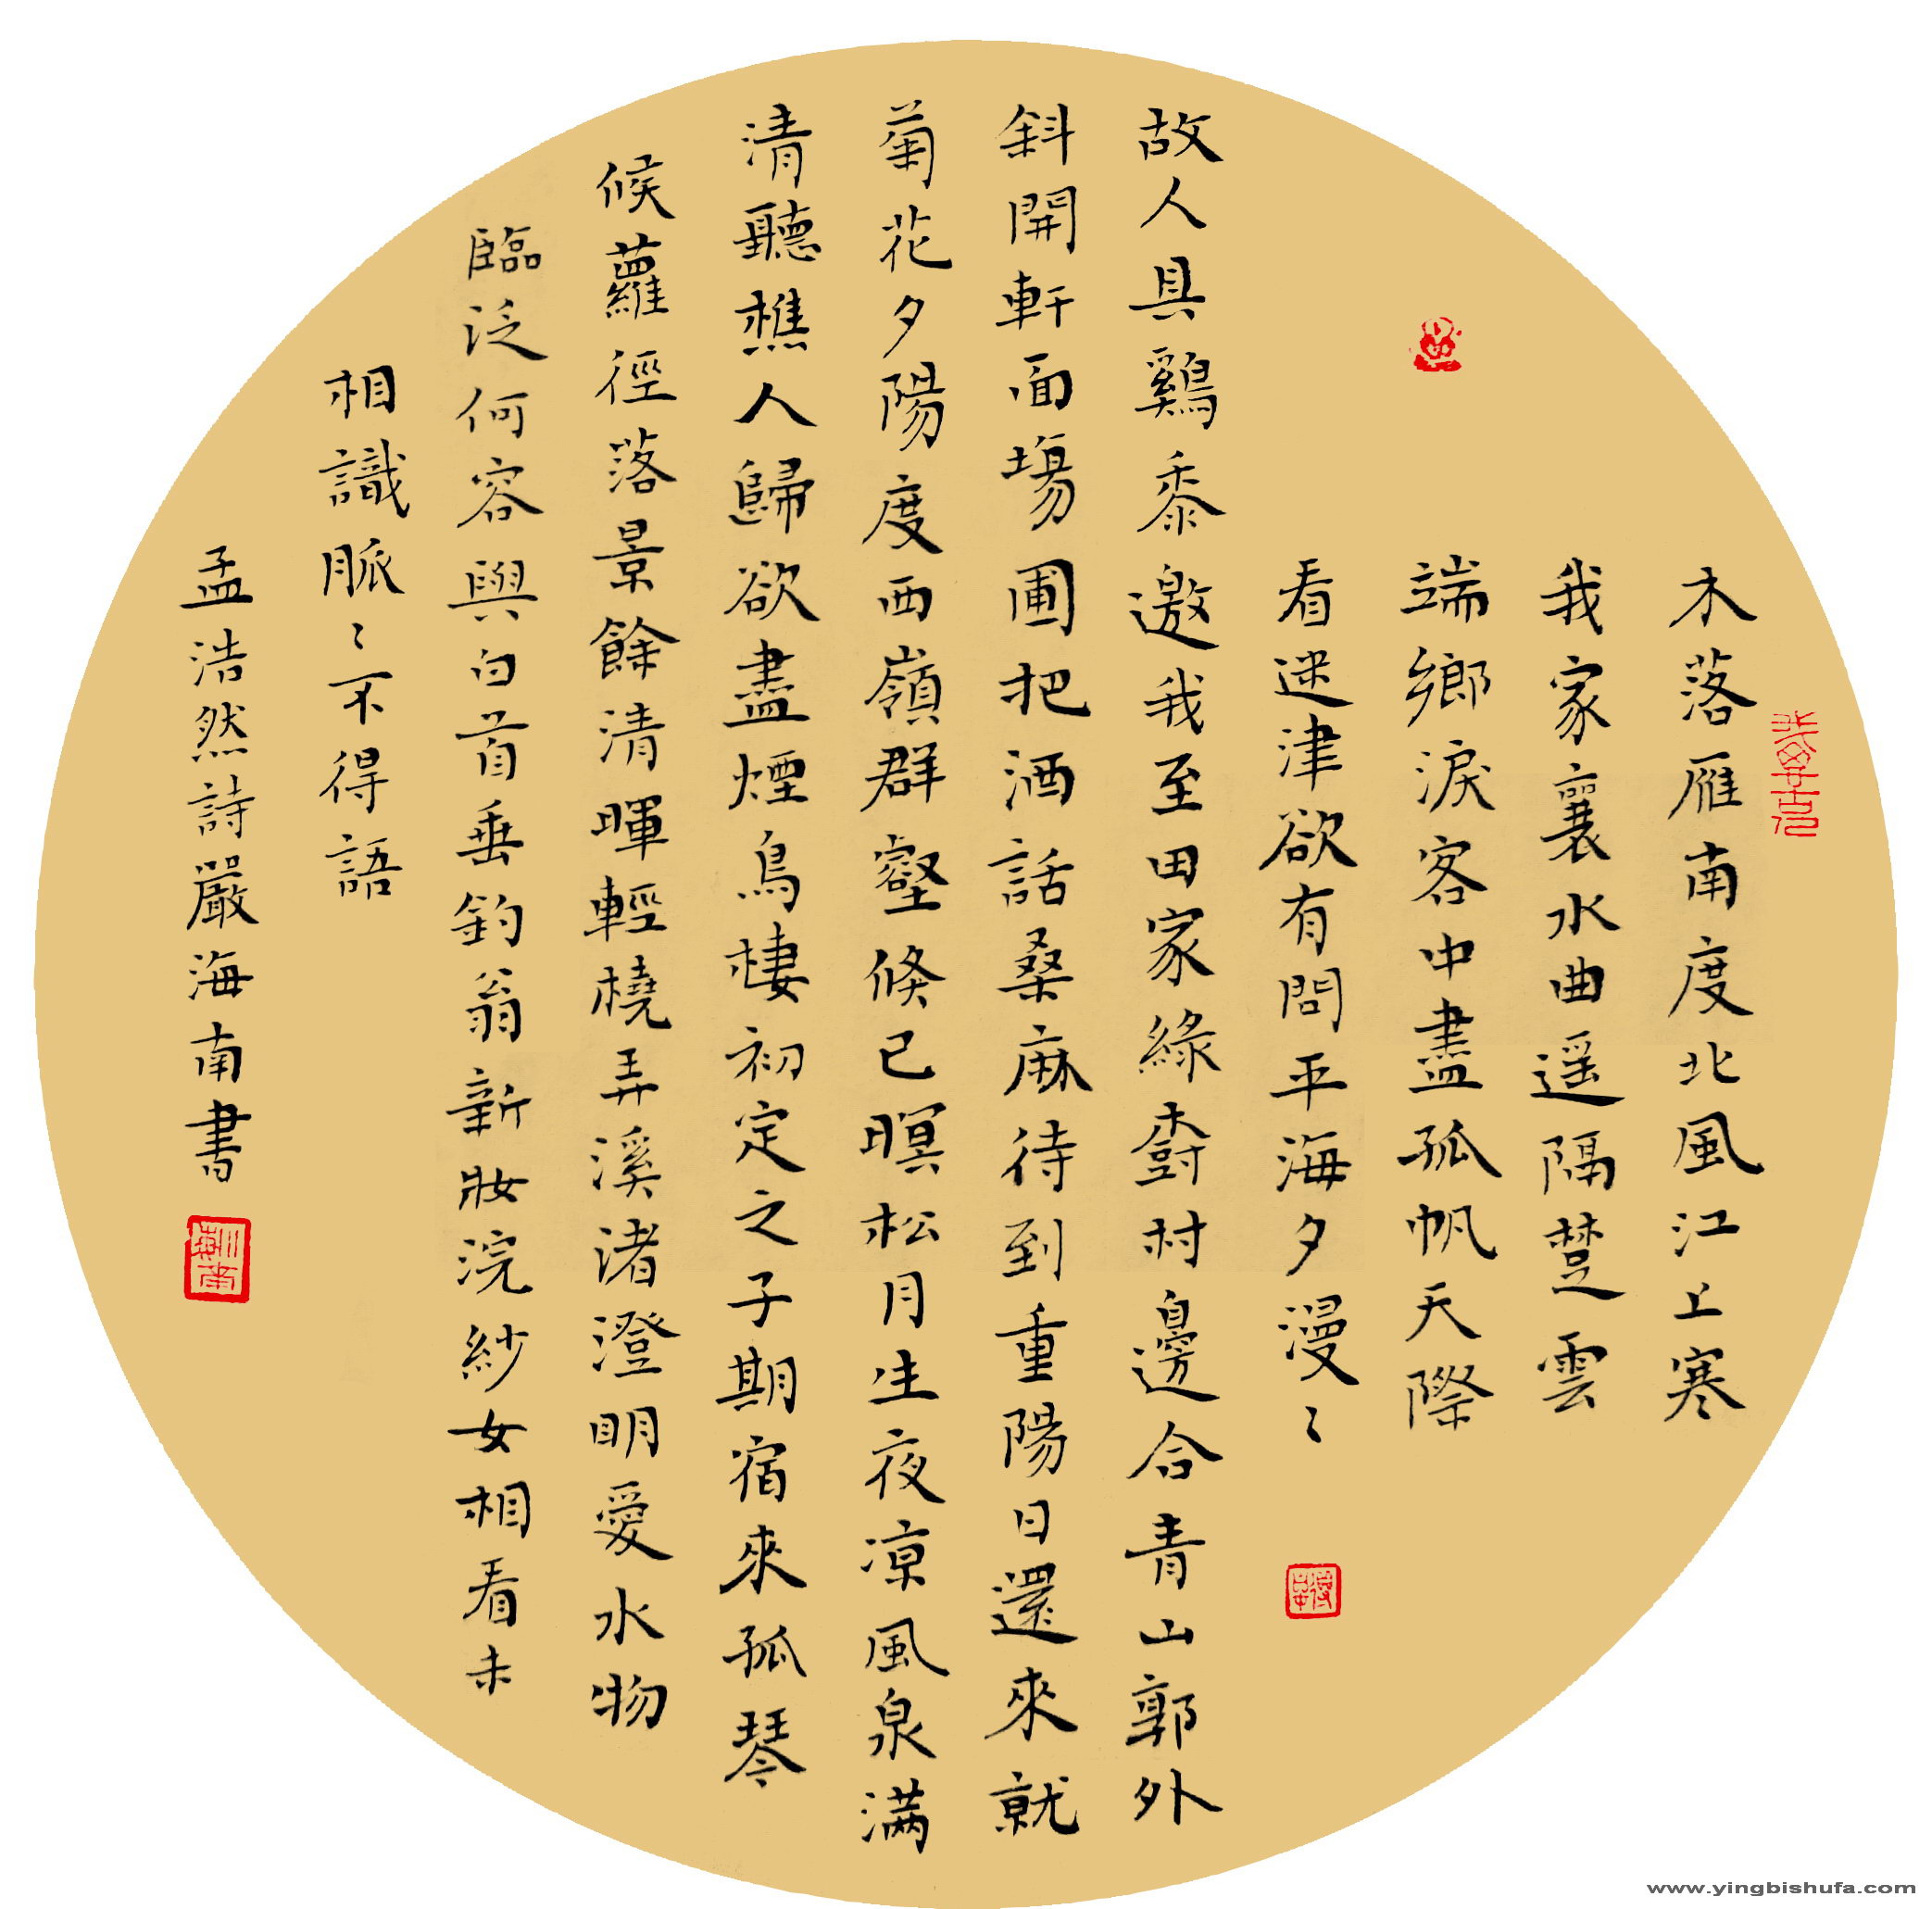 木落雁南度北風江上寒
我家襄水曲遥隔楚雲
端鄉淚客中盡孤帆天際
看迷津欲有問平海夕漫〻
故人具鷄黍邀我至田家綠樹村邊合青山郭外
斜開軒面場圃把酒話桑麻待到重陽日還來就
菊花夕陽度西嶺群壑倏已暝松月生夜凉風泉满
清聽樵人歸欲盡煙鳥棲初定之子期宿來孤琴
候蘿徑落景餘清暉輕橈弄溪渚澄明愛水物
臨泛何容與白首垂釣翁新妝浣紗女相看未
相識脈〻不得語
孟浩然詩嚴海南書
www.yingbishufa.com